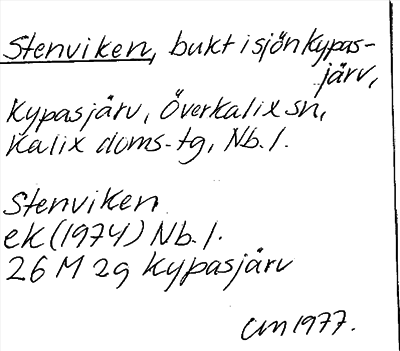 Stenviken, bukt i sjön Kypas-
järv,
Kypasjärv, Överkalix sn,
Kalix doms-tg, Nb. l.
Stenviken
ek (1974) Nb. l.
26 M 2g Kypasjärv
CM 1977.